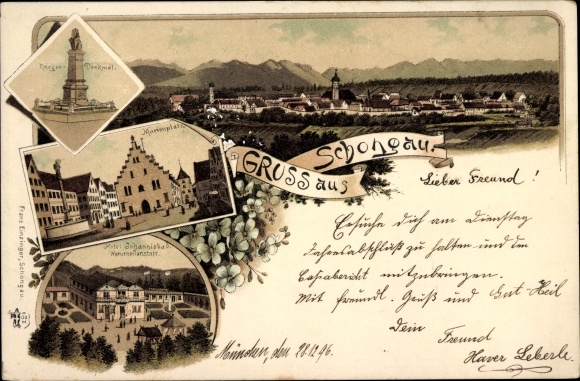 Krieger-Denkmal.
Marienplatz
Hotel Johannisbad.
Naturheilanstalt.
GRUSS aus Schongau.
Franz Einzinger, Schongau.
Lieber Freund!
Ersuche dich am Dienstag
Jahresabschluß zu halten und den
mitzubringen.
Mit freundl. Gruß und Gut-Heil
Dein
Freund
Xaver Leberle
München, den 28.12.96.